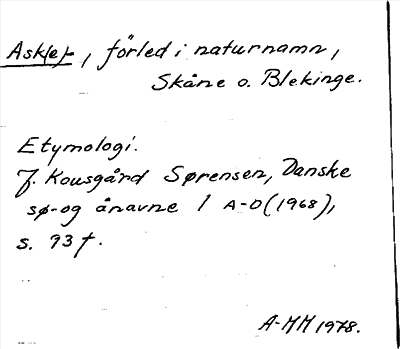 Ask(e)-, förled i naturnamn,
Skåne o. Blekinge.
Etymologi.
J. Kousgård Sørensen, Danske
sø- og ånavne 1 A-D (1968),
s. 93 f.
A-MM 1978.